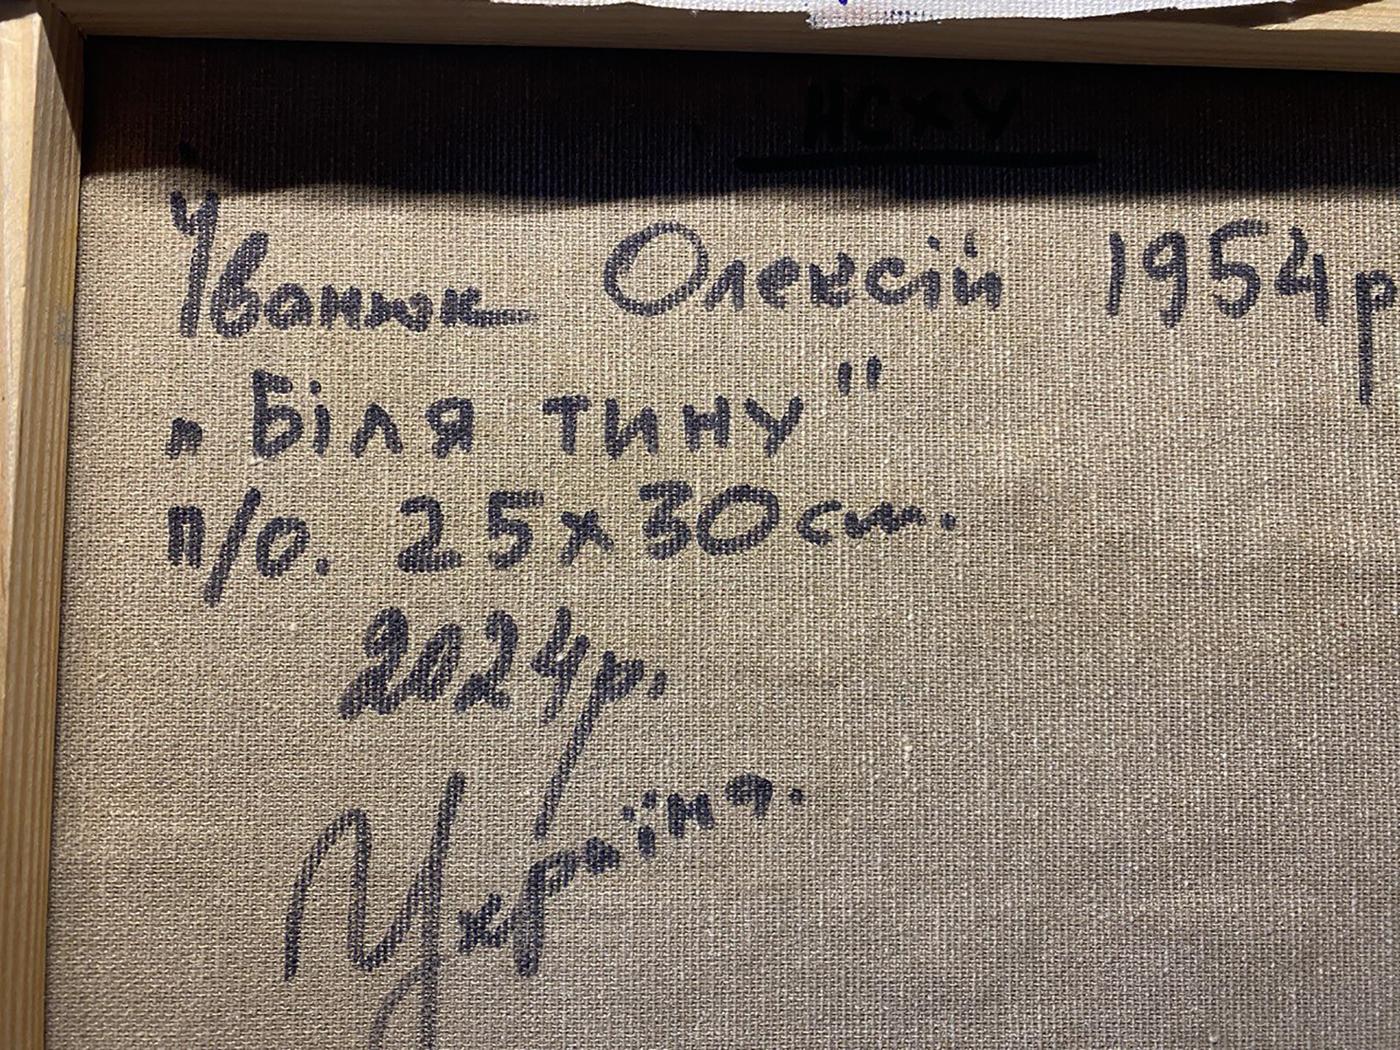 НСХУ
Іванюк Олексій 1954р
„Біля тину"
п/о. 25х30см.
2024р.
Україна.